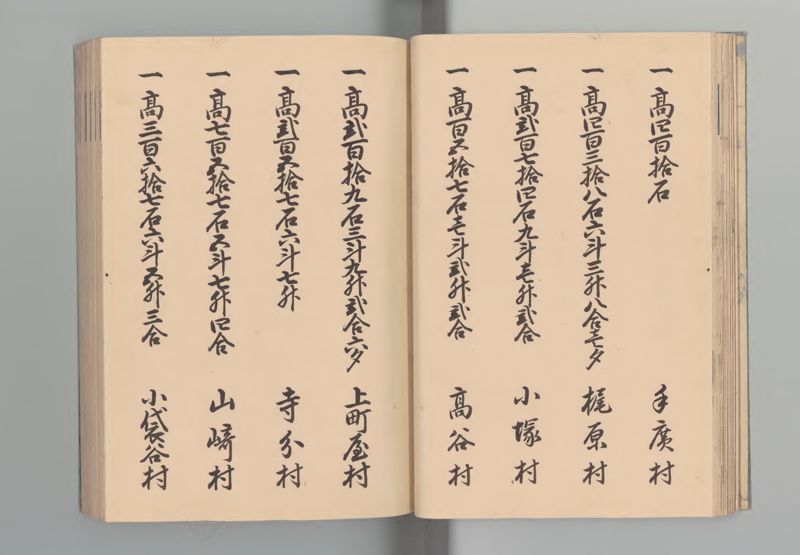 一 高四百拾石 手廣村
一 高四百三拾八石六斗三升八合壱夕 梶原村
一 高弐百七拾四石九斗壱升弐合 小塚村
一 高百五拾七石壱斗弐升弐合 高谷村
一 高弐百拾九石三斗九升弐合六夕 上町屋村
一 高弐百五拾七石六斗七升 寺分村
一 高七百五拾七石五斗七升四合 山崎村
一 高三百六拾七石六斗五升三合 小袋谷村